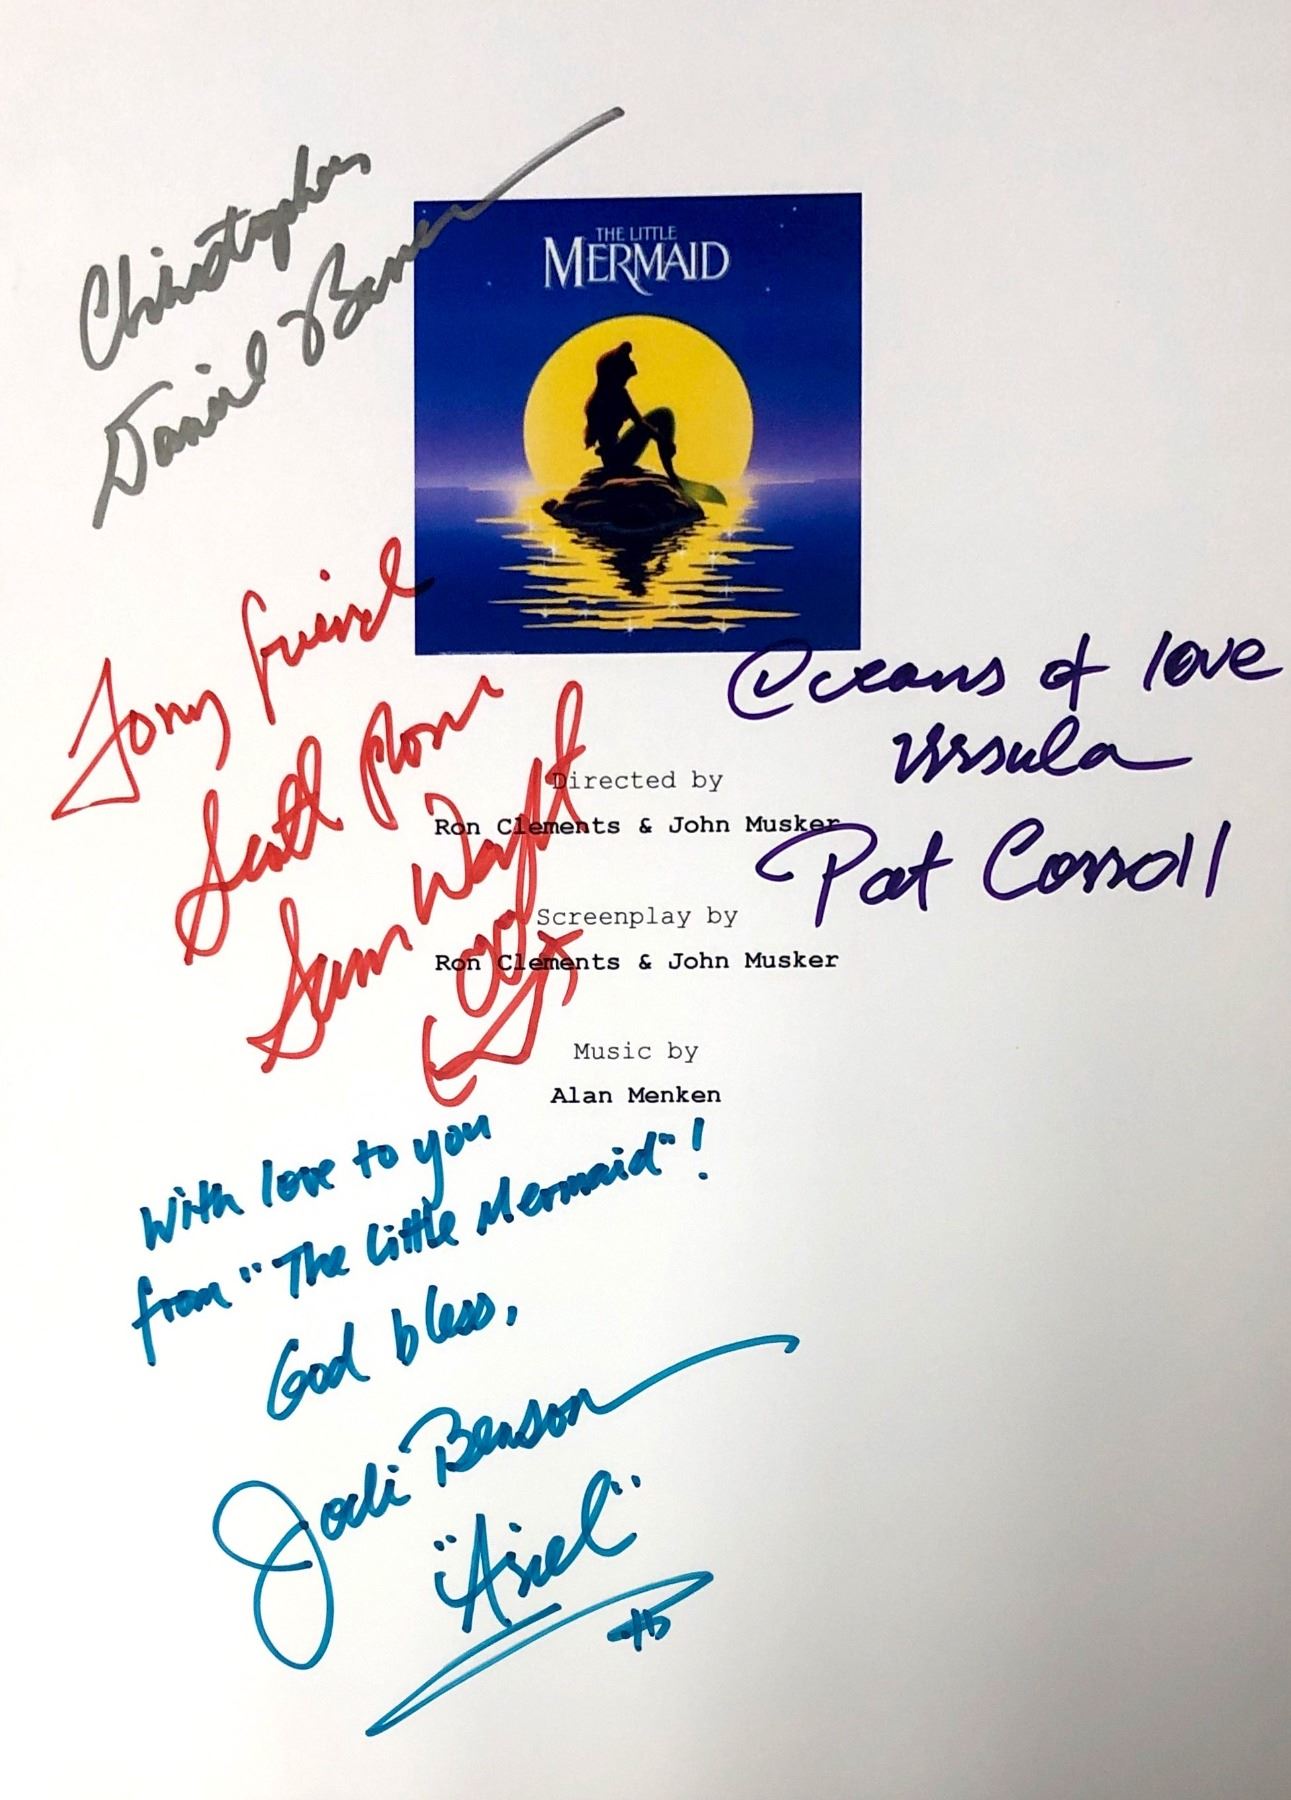 Christopher
Daniel Barnes
THE LITTLE
MERMAID
Your friend
Sam Wright
Oceans of love
Ursula
Pat Carroll
Directed by
Ron Clements & John Musker
Screenplay by
Ron Clements & John Musker
Music by
Alan Menken
With love to you
from "The Little Mermaid"!
God bless,
Jodi Benson
"Ariel"